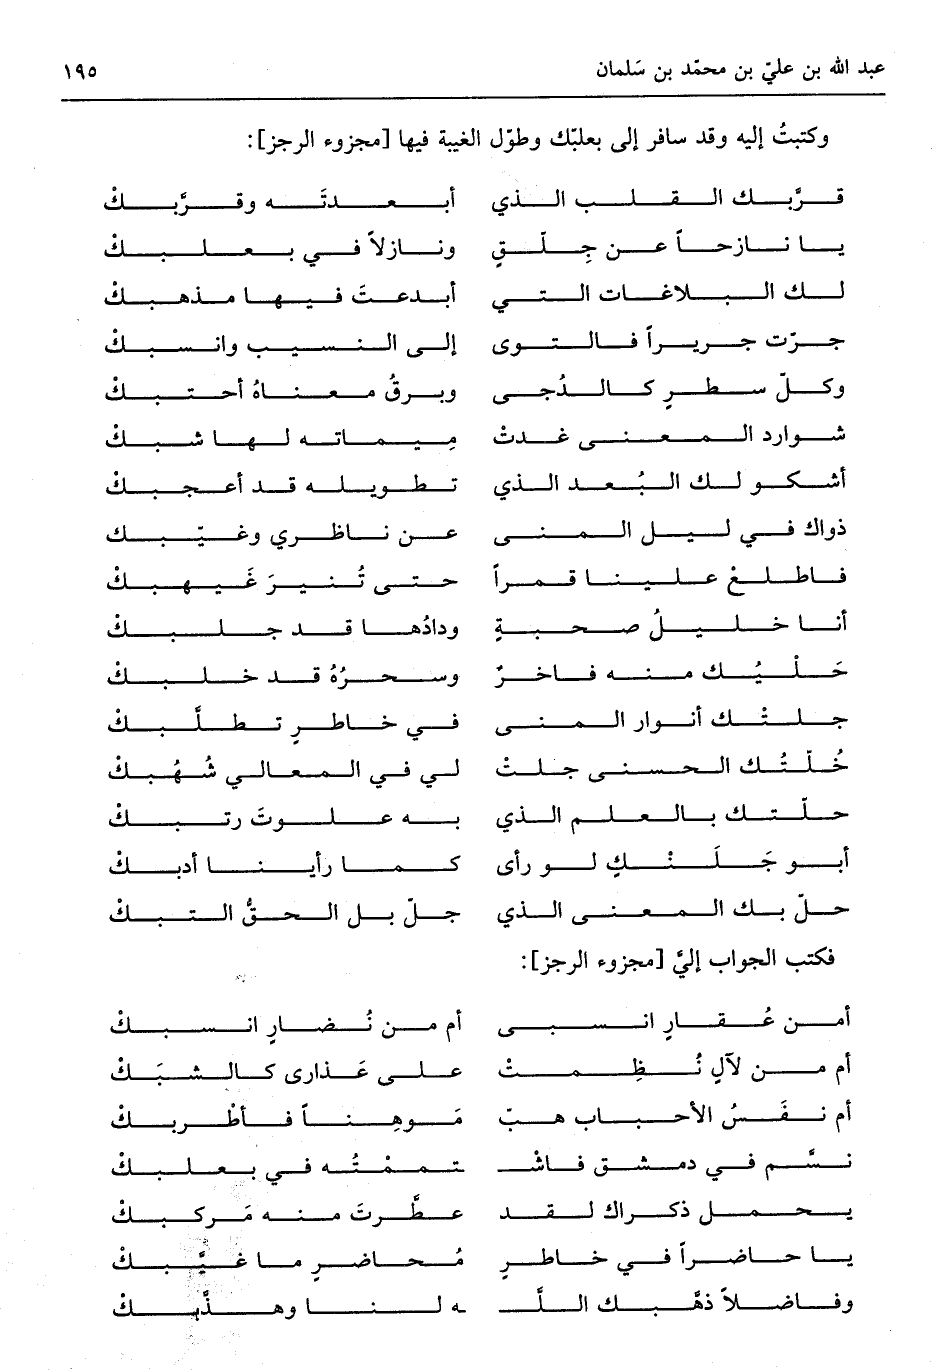 عبد الله بن عليّ بن محمّد بن سَلمان ١٩٥
وكتبتُ إليه وقد سافر إلى بعلبّك وطوّل الغيبة فيها [مجزوء الرجز]:
قرَّبك القلب الذي أبعدتَه وقرَّبكْ
يا نازحاً عن جِلّقٍ ونازلاً في بعلبكْ
لك البلاغات التي أبدعتَ فيها مذهبكْ
جرّت جريراً فالتوى إلى النسيب وانسبكْ
وكلّ سطرٍ كالدُجى وبرقُ معناهُ أحتبكْ
شوارد المعنى غدتْ مِيماته لها شبكْ
أشكو لك البُعد الذي تطويله قد أعجبكْ
ذواك في ليل المنى عن ناظري وغيّبك
فاطلعْ علينا قمراً حتى تُنيرَ غَيهبكْ
أنا خليلُ صحبةٍ ودادُها قد جلبكْ
حَلْيُك منه فاخرٌ وسحرُهُ قد خلبكْ
جلتْك أنوار المنى في خاطرٍ تطلَّبكْ
خُلّتُك الحسنى جلتْ لي في المعالي شُهُبكْ
حلّتك بالعلم الذي به علوتَ رتبكْ
أبو جَلَنْكٍ لو رأى كما رأينا أدبكْ
حلّ بك المعنى الذي جلّ بل الحقُّ التبكْ
فكتب الجواب إليَّ [مجزوء الرجز]:
أمن عُقارٍ انسبى أم من نُضارٍ انسبكْ
أم من لآلٍ نُظِمتْ على عَذارى كالشبَكْ
أم نفَسُ الأحباب هبّ مَوهِناً فأطْربكْ
نسَّم في دمشق فاشْـ ـتممْتُه في بعلبكْ
يحمل ذكراك لقد عطَّرتَ منه مَركبكْ
يا حاضراً في خاطرٍ مُحاضرٍ ما غيَّبكْ
وفاضلاً ذهَّبك اللَّـ ـه لنا وهذَّبكْ